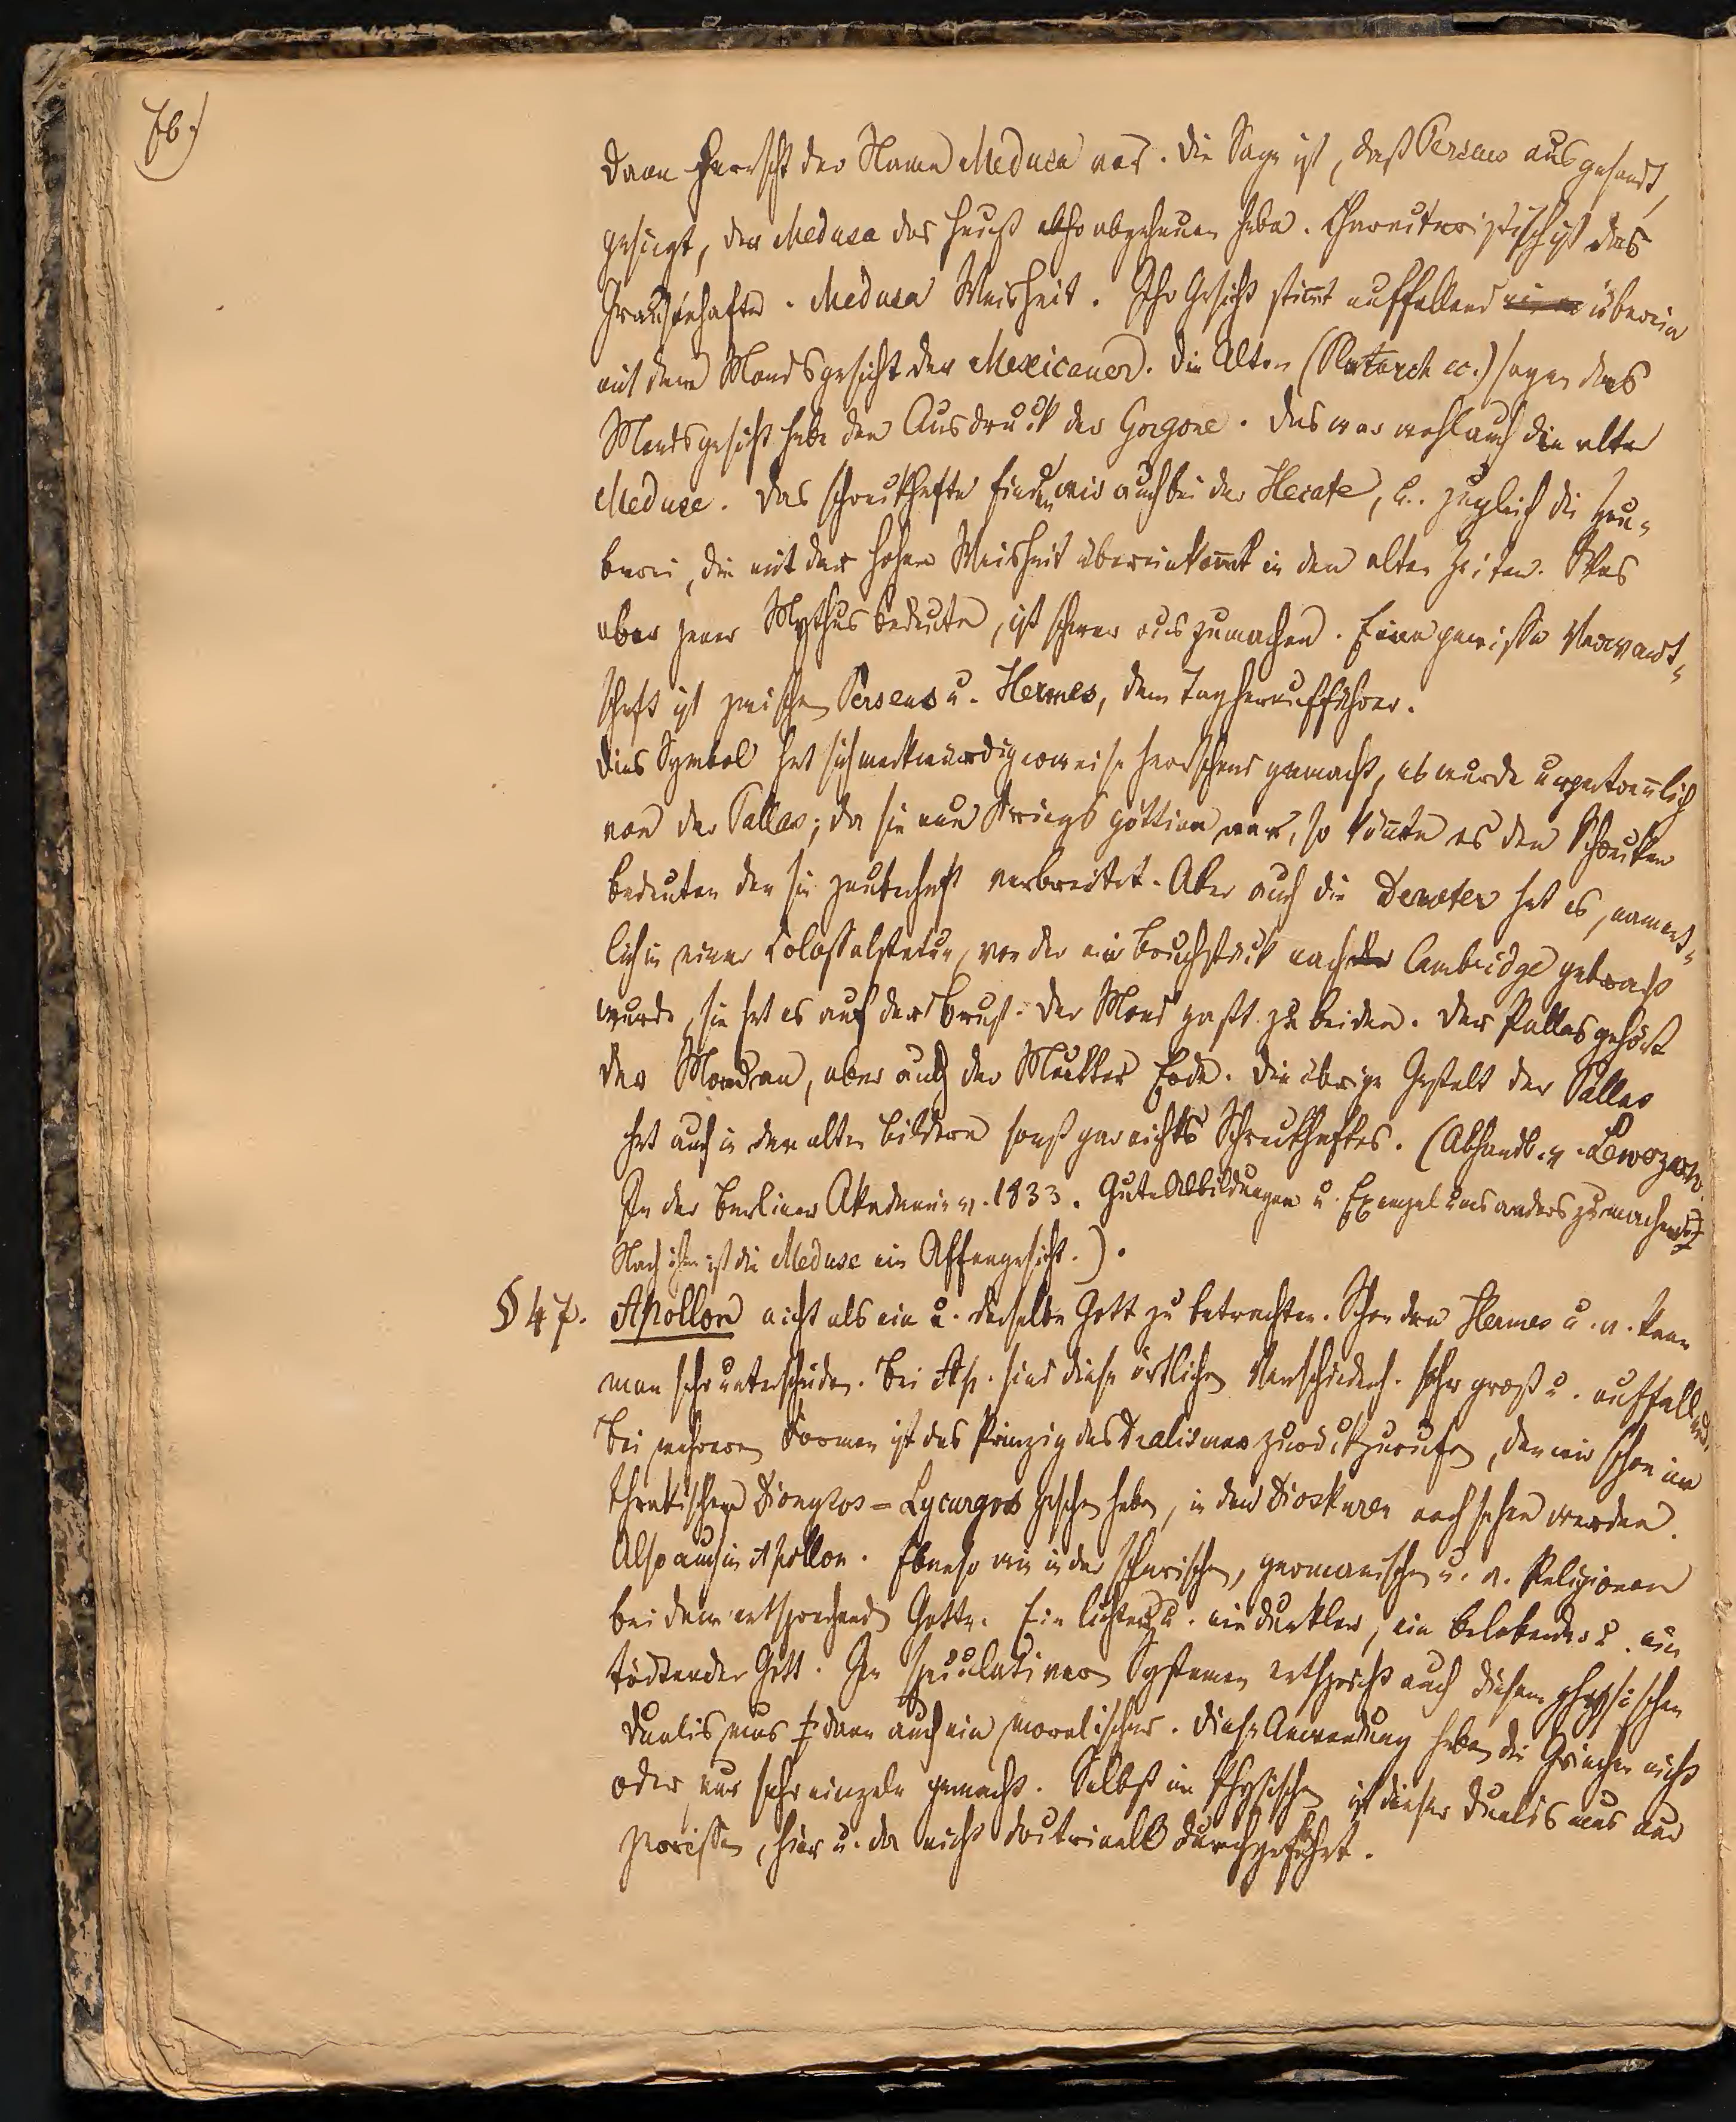 76.)
Dann herrscht der Name Medusa vor. Die Sage ist, daß Perseus ausgesandt,
gesiegt, der Medusa das Haupt abgehauen habe. Charakteristisch ist das
Grausenhafte. Medusa Weisheit. Ihr Gesicht stimt auffallend überein
mit dem Mondsgesicht der Mexicaner. Die Alten (Plutarch cc.) sagen das
Mondsgesicht habe den Ausdruck der Gorgone. Das war wohl auch die alte
Meduse. Das schreckhafte finden wir auch bei der Hecate, u. zugleich die Zau-
berei, die mit der hohen Weisheit übereinkomt in den alten Zeiten. Was
aber jener Mythus bedeute, ist schwer auszumachen. Eine gewisse Verwandt-
schaft ist zwischen Perseus u. Hermes, dem Tagheraufführer.
Dies Symbol hat sich merkwürdigerweise herrschend gemacht, es wurde unzertrenlich
von der Pallas; da sie eine Kriegsgöttinn war, so könte es den Schrecken
bedeuten den sie zauberhaft verbreitet. Aber auch die Demeter hat es, nament-
lich in einer Colossalstatue, von der ein Bruchstück nach Cambridge gebracht
wurde, sie hat es auf der Brust. Der Mond paßt zu beiden. Der Pallas gehört
der Mond an, aber auch der Mutter Erde. Die übrige Gestalt der Pallas
hat auch in den alten Bildern sonst gar nichts Schreckhaftes. (Abhandl. v. Lewezow
In der Berliner Akademie v. 1833. Gute Abbildungen u. anders zu machen
Nach ihm ist die Meduse ein Affengesicht.).
§ 47. Apollon nicht als ein u. derselbe Gott zu betrachten. Schon den Hermes u. a. kann
man sehr unterscheiden. Bei Ap. sind diese örtlichen Verschiedenh. sehr groß u. auffallend,
Bei mehreren Formen ist das Prinzip des Dualismus zurückzurufen, den wir schon im
thrakischen Dionysos = Lycurgos gesehen haben, in den Dioskuren noch sehen werden.
Also auch in Apollon. Ebenso wie in der , germanischen u. a. Religionen
bei dem entsprechend Gotte. Ein lichter u. ein dunkler, ein belebender u. ein
tödtender Gott. In speculativen Systemen entspricht auch diesem physischen
Dualismus dann auch ein moralischer. Diese Anwendung haben die Griechen nicht
oder nur sehr einzeln gemacht. Selbst im Physischen ist dieser Dualismus nur
, hier u. da nicht doctrinell durchgeführt.